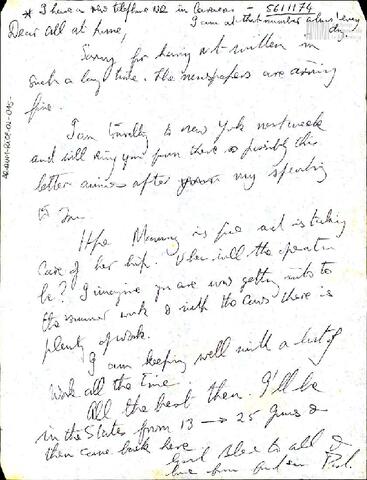 * I have a new telephone no in Caracas - 5611174
I am at that number almost every
day.
Dear all at home,
Sorry for having not written in
such a long time. The newspapers are arriving
fine.
I am travelling to New York next week
and will ring you from there so possibly this
letter arrives after my speaking
to you.
Hope Mammy is fine and is taking
care of her hip. When will the operation
be? I imagine you are now getting into to
the summer work & with the cows there is
plenty of work.
I am keeping well with a lot of
work all the time.
All the best then. I'll be
in the States from 13 → 25 June &
then come back here
God bless to all &
love from